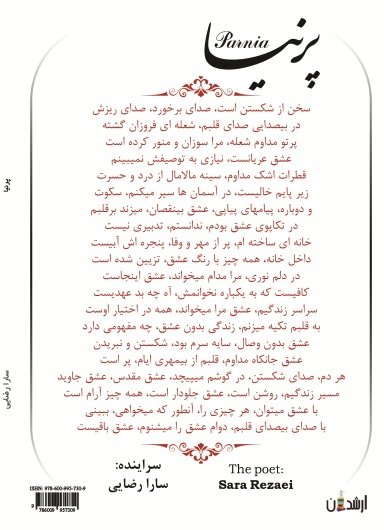 پرنیا
Parnia
سخن از شکستن است، صدای برخورد، صدای ریزش
در بیصدایی صدای قلبم، شعله ای فروزان گشته
پرتو مداوم شعله، مرا سوزان و منور کرده است
عشق عریانست، نیازی به توصیفش نمیبینم
قطرات اشک مداوم، سینه مالامال از درد و حسرت
زیر پایم خالیست، در آسمان ها سیر میکنم، سکوت
و دوباره، پیامهای پیاپی، عشق بینقصان، میزند برقلبم
در تکاپوی عشق بودم، ندانستم، تدبیری نیست
خانه ای ساخته ام، پر از مهر و وفا، پنجره اش آبیست
داخل خانه، همه چیز با رنگ عشق، تزیین شده است
در دلم نوری، مرا مدام میخواند، عشق اینجاست
کافیست که به یکباره نخوانمش، آه چه بد عهدیست
سراسر زندگیم، عشق مرا میخواند، همه در اختیار اوست
به قلبم تکیه میزنم، زندگی بدون عشق، چه مفهومی دارد
عشق بدون وصال، سایه سرم بود، شکستن و نبریدن
عشق جانکاه مداوم، قلبم از بیمهری ایام، پر است
هر دم، صدای شکستن، در گوشم میپیچد، عشق مقدس، عشق جاوید
مسیر زندگیم، روشن است، عشق جلودار است، همه چیز آرام است
با عشق میتوان، هر چیزی را، آنطور که میخواهی، ببینی
با صدای بیصدای قلبم، دوام عشق را میشنوم، عشق باقیست
سراینده:
سارا رضایی
The poet:
Sara Rezaei
پرنیا
سارا رضایی
ISBN: 978-600-995-730-9
9 786009 957309
ارشدان